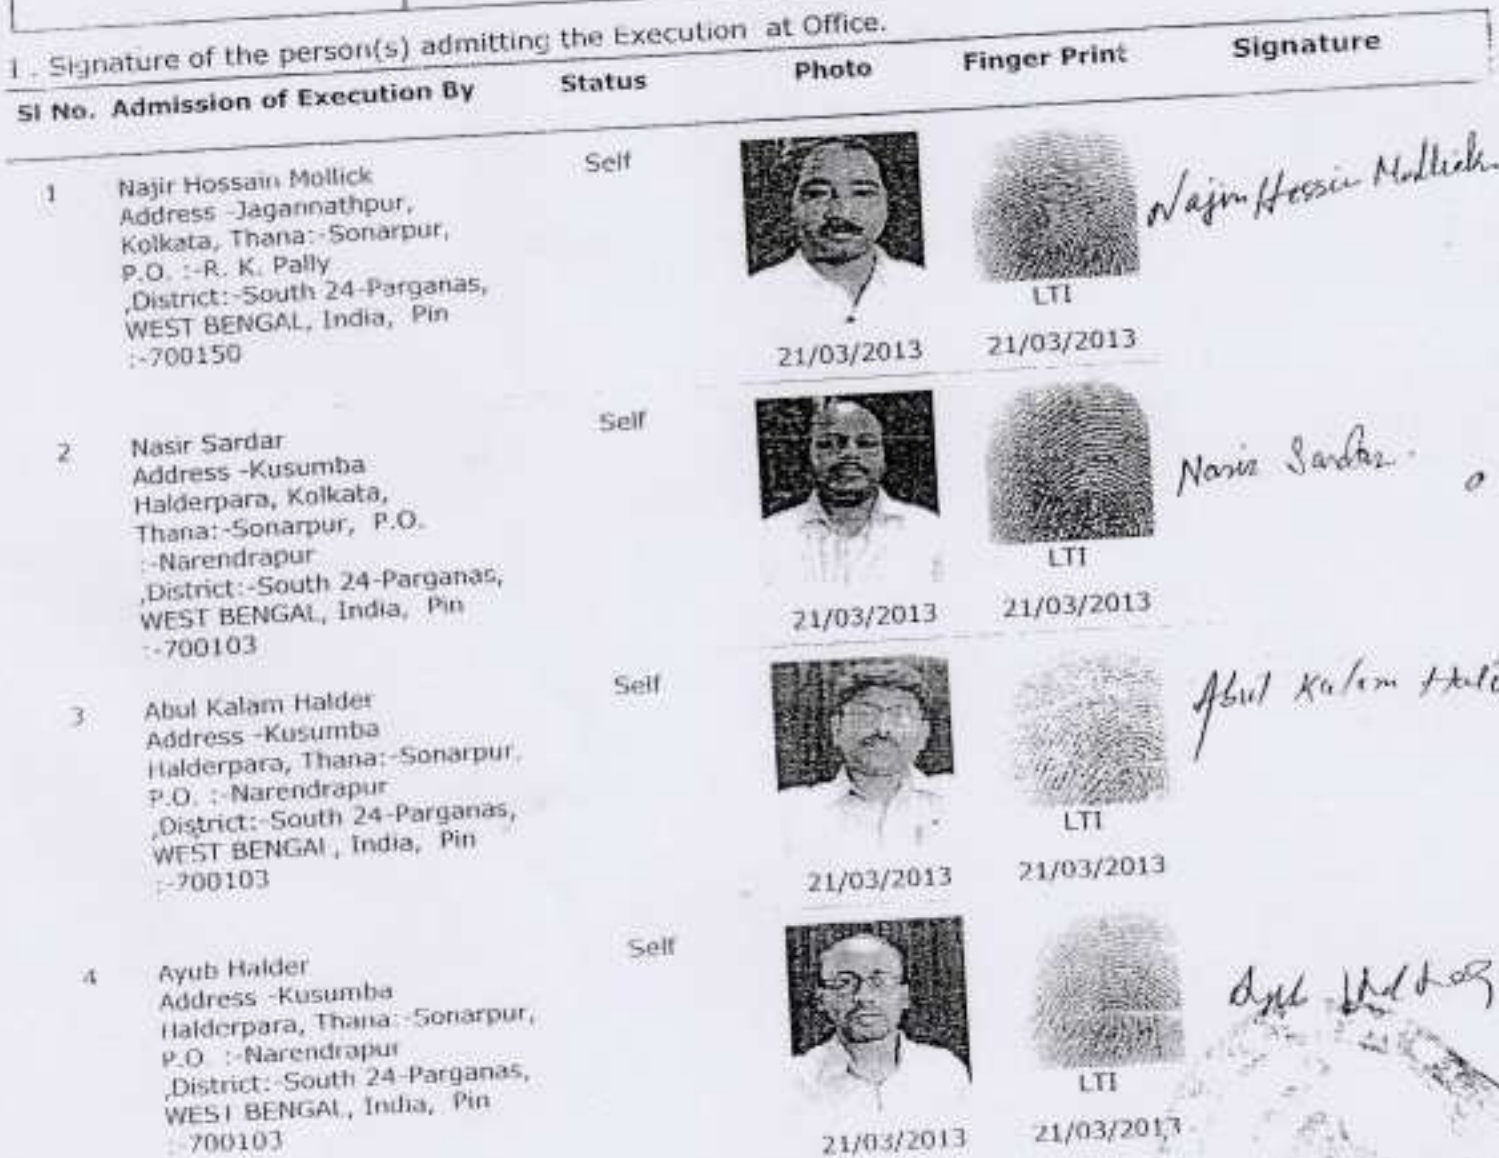 I . Signature of the person(s) admitting the Execution at Office.
Sl No. Admission of Execution By Status Photo Finger Print Signature
1 Najir Hossain Mollick Self
Address -Jagannathpur,
Kolkata, Thana:-Sonarpur,
P.O. :-R. K. Pally
,District:-South 24-Parganas,
WEST BENGAL, India, Pin
:-700150
Najir Hossin Mollick
LTI
21/03/2013 21/03/2013
2 Nasir Sardar Self
Address -Kusumba
Halderpara, Kolkata,
Thana:-Sonarpur, P.O.
:-Narendrapur
,District:-South 24-Parganas,
WEST BENGAL, India, Pin
:-700103
Nasir Sardar.
LTI
21/03/2013 21/03/2013
3 Abul Kalam Halder Self
Address -Kusumba
Halderpara, Thana:-Sonarpur,
P.O. :-Narendrapur
,District:-South 24-Parganas,
WEST BENGAL, India, Pin
:-700103
Abul Kalam
LTI
21/03/2013 21/03/2013
4 Ayub Halder Self
Address -Kusumba
Halderpara, Thana:-Sonarpur,
P.O. :-Narendrapur
,District:-South 24-Parganas,
WEST BENGAL, India, Pin
:-700103
LTI
21/03/2013 21/03/2013